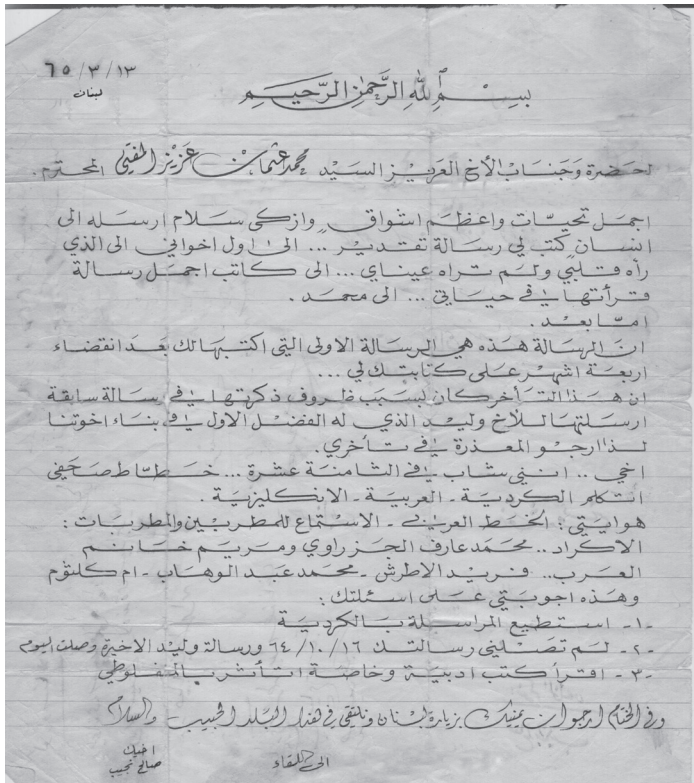 ٦٥/٣/١٣
لبنان
بسم الله الرحمن الرحيم
لحضرة وجناب الأخ العزيز السيد محمد عثمان عزيز المفتي المحترم.
اجمل تحيات واعظم اشواق وازكى سلام ارسله الى
انسان كتب لي رسالة تقدير ... الى اول اخواني الى الذي
رآه قلبي ولم تراه عيناي ... الى كاتب اجمل رسالة
قرأتها في حياتي ... الى محمد.
امّا بعد.
ان الرسالة هذه هي الرسالة الاولى التي اكتبها لك بعد انقضاء
اربعة اشهر على كتابتك لي ...
ان هذا التأخر كان بسبب ظروف ذكرتها في رسالة سابقة
ارسلتها للأخ وليد الذي له الفضل الاول في بناء اخوتنا
لذا ارجو المعذرة في تأخري.
اخي .. انني شاب في الثامنة عشرة ... خطاط صحفي
اتكلم الكردية - العربية - الانكليزية.
هوايتي: الخط العربي - الاستماع للمطربين والمطربات:
الاكراد .. محمد عارف الجزراوي ومريم خانم
العرب .. فريد الاطرش - محمد عبد الوهاب - ام كلثوم
وهذه اجوبتي على اسئلتك:
-١- استطيع المراسلة بالكردية
-٢- لم تصلني رسالتك ٦٤/١٠/١٦ ورسالة وليد الاخيرة وصلت اليوم
-٣- اقرأ كتب ادبية وخاصة اتأثر بالمنفلوطي
وفي الختام ارجو ان يمنيك بزيارة لبنان ونلتقي في هذا البلد الحبيب والسلام
الى اللقاء
اخيك
صالح نجيب